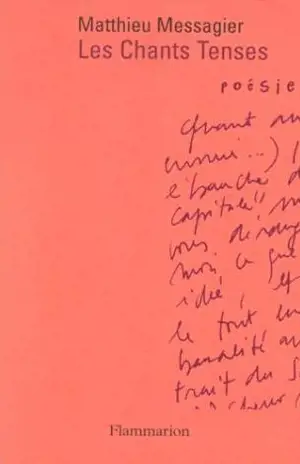 Matthieu Messagier
Les Chants Tenses
poésie
quant au
ennui...)
l'ébauche d
capitale"
vous dérang
moi, ce que
idée, et
le tout en
banalité au
trait du S
Flammarion